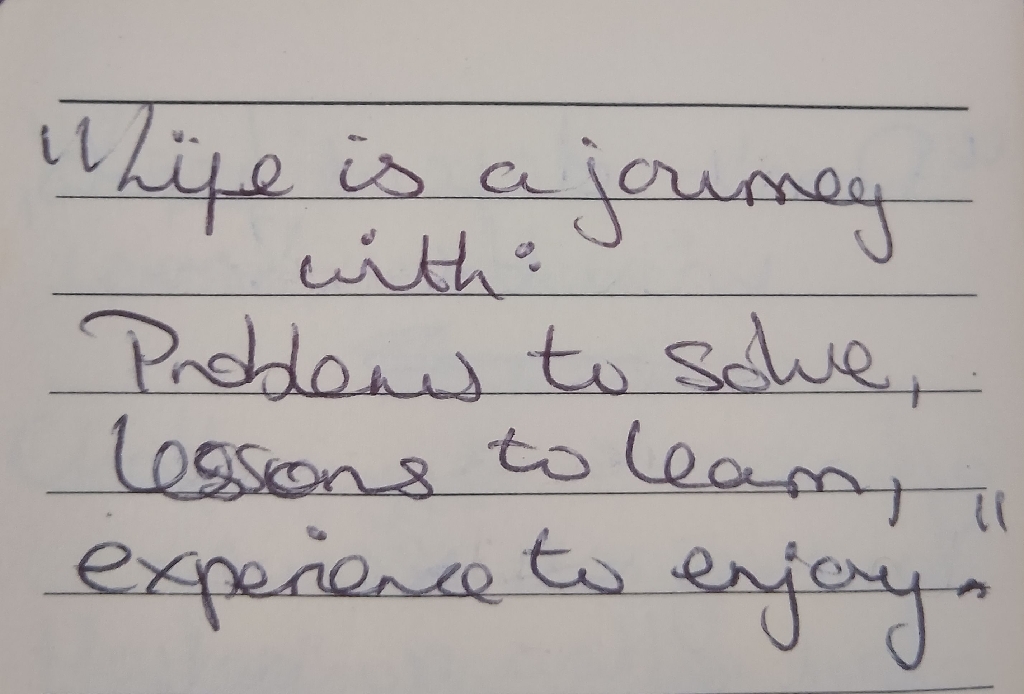 "Life is a journey
with:
Problems to solve,
lessons to learn,
experience to enjoy."